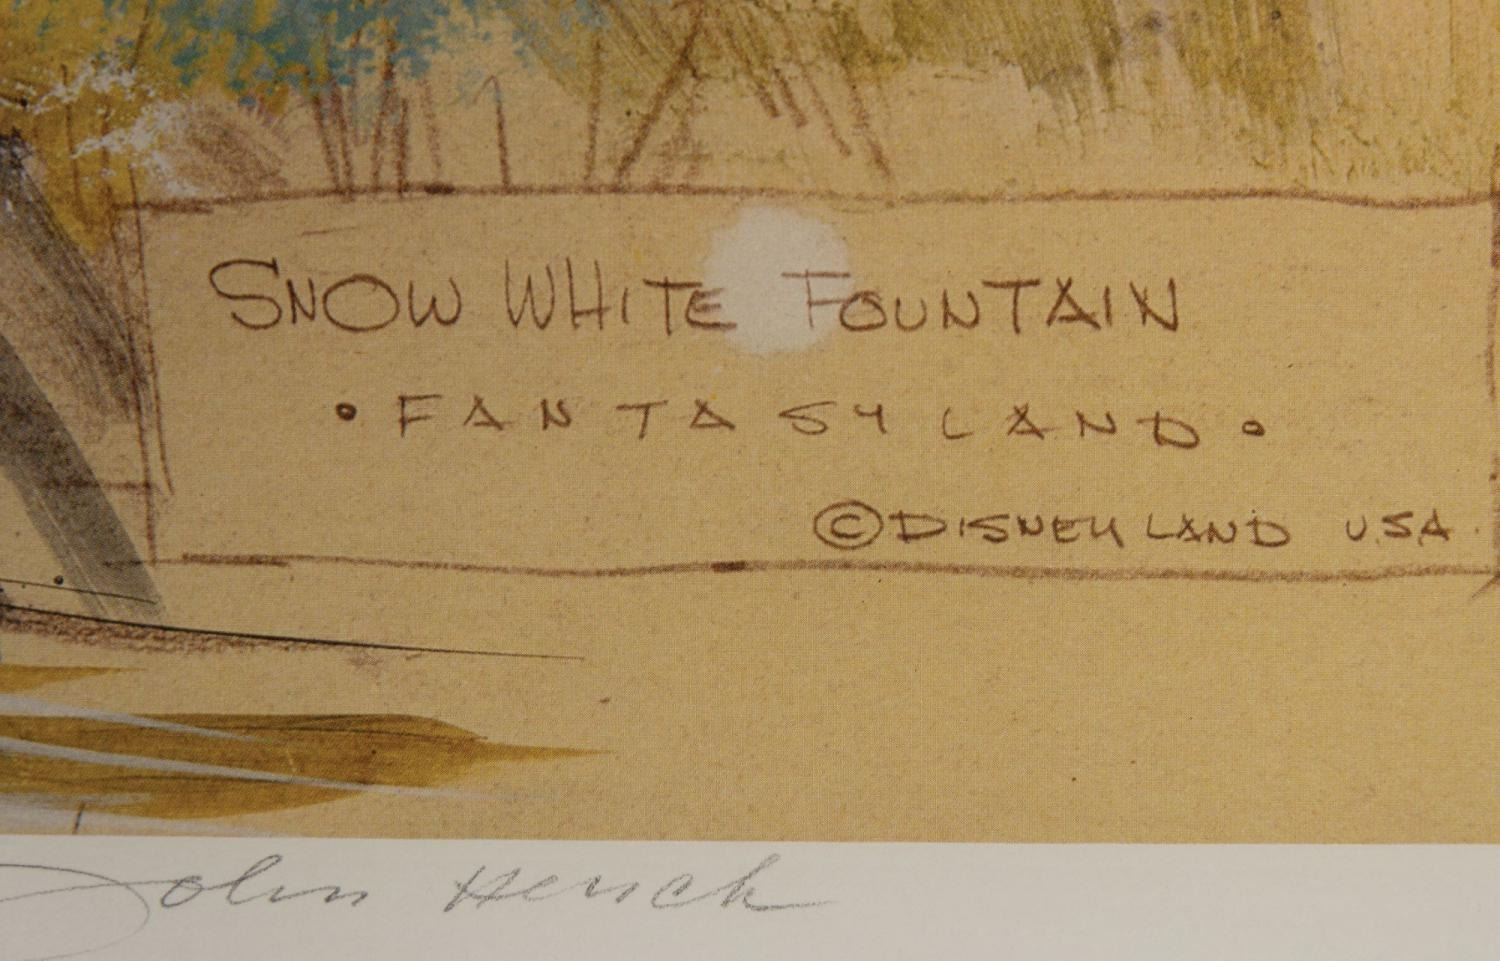 SNOW WHITE FOUNTAIN
• FANTASYLAND •
© DISNEYLAND U.S.A.
John Hench